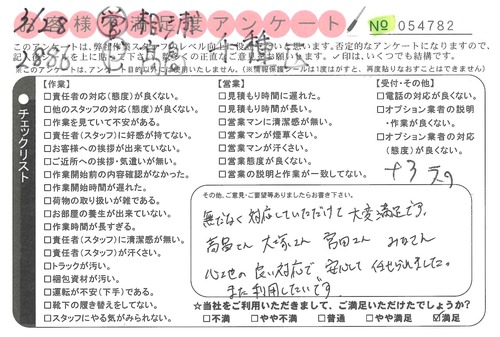 3/28 ㊂ 相原
お客様満足度アンケート
№ 054782
2886
このアンケートは、弊社
をいつでも結構です。
※このアンケートは、
(※情報保護シールは1度はがすと、再度貼りなおすことはできません)
チェックリスト
【作業】
□責任者の対応(態度)が良くない。
□他のスタッフの対応(態度)が良くない。
□作業を見ていて不安がある。
□責任者(スタッフ)に好感が持てない。
□お客様への挨拶が出来ていない。
□ご近所への挨拶・気遣いが無い。
□作業開始前の内容確認がなかった。
□作業開始時間が遅れた。
□荷物の取り扱いが雑である。
□お部屋の養生が出来ていない。
□作業時間が長すぎる。
□責任者(スタッフ)に清潔感が無い。
□責任者(スタッフ)が汗くさい。
□トラックが汚い。
□梱包資材が汚い。
□運転が不安(下手)である。
□靴下の履き替えをしてない。
□スタッフにやる気がみられない。
【営業】
□見積もり時間に遅れた。
□見積もり時間が長い。
□営業マンに清潔感が無い。
□営業マンが煙草くさい。
□営業マンが汗くさい。
□営業態度が良くない。
□営業の説明と作業が一致してない。
【受付・その他】
□電話の対応が良くない。
□オプション業者の説明
・作業が良くない。
□オプション業者の対応
(態度)が良くない。
その他、ご意見・ご要望等ありましたらお書き下さい。
無だなく対応していただけて大変満足です。
高畠さん 大塚さん 富田さん みなさん
心よの良い対応で安心して任せられました。
また利用したいです
☆当社をご利用いただきまして、ご満足いただけたでしょうか?
□不満 □やや不満 □普通 □やや満足 ☑満足